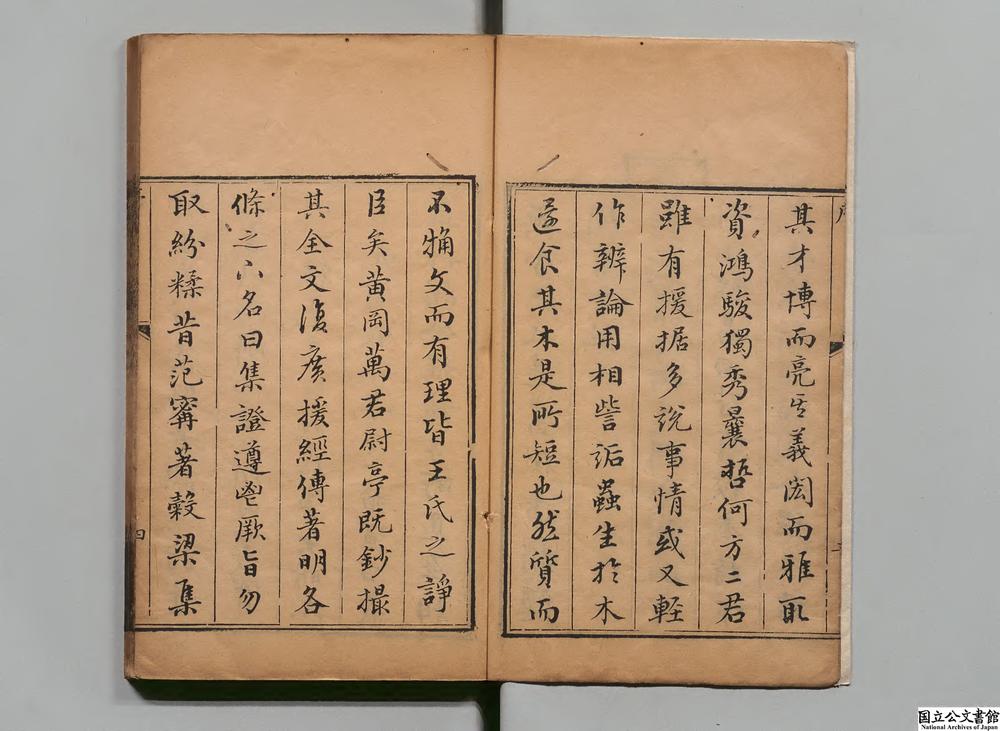 其才博而亮其義閎而雅取
資鴻駿獨秀曩哲何方二君
雖有援据多說事情或又輕
作辨論用相訾詬蟲生於木
還食其木是所短也然質而
不觕文而有理皆王氏之諍
臣矣黃岡萬君尉亭既鈔撮
其全文復廣援經傳著明各
條之下名曰集證遵邕厥旨勿
取紛糅昔范寗著穀梁集
四
国立公文書館
National Archives of Japan